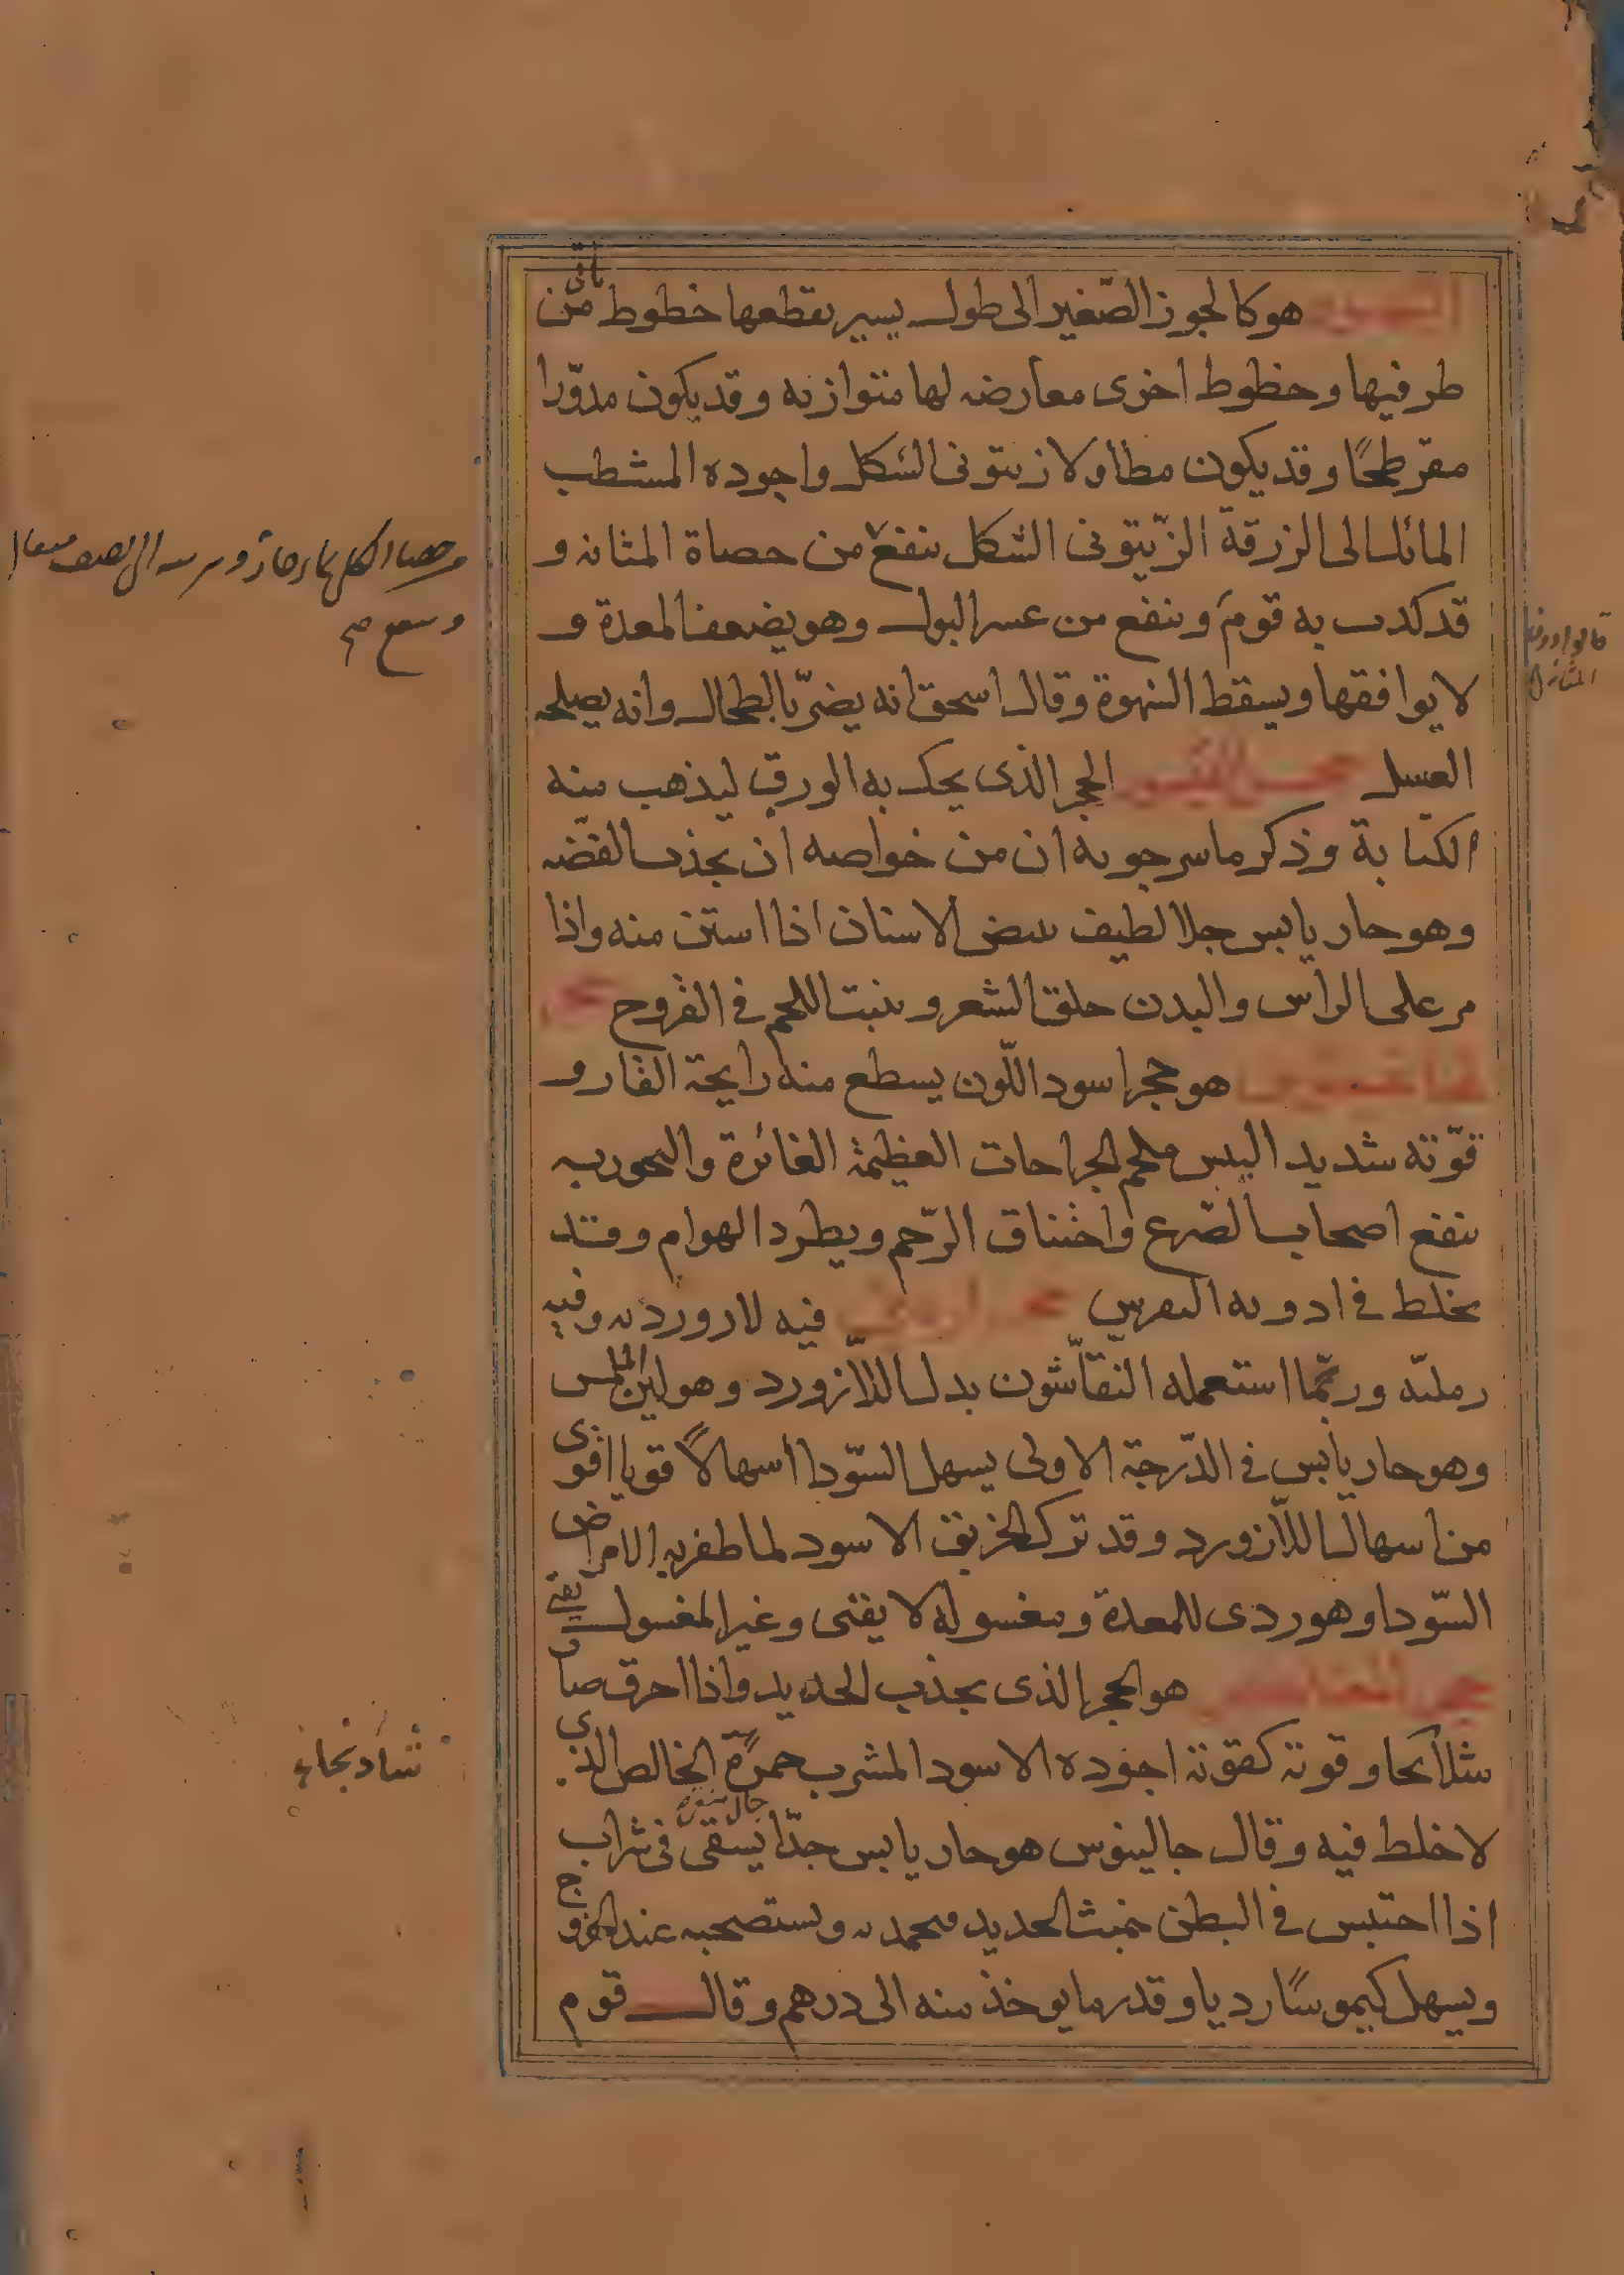 هو كالجوز الصّغير الى طول يسير يقطعها خطوط من
طرفيها و خطوط اخرى معارضه لها متوازيه وقد يكون مدوّرا
مفرطحًا وقد يكون مطاولا زيتونى الشكل واجوده المشطب
المائل الى الزرقة الزّيتونى الشكل ينفع من حصاة المثانه و
قد كذب به قوم وينفع من عسر البول وهو يضعف المعدة و
لا يوافقها ويسقط الشهوة وقال اسحق انه يضرّ بالطحال وانه يصلحه
العسل الحجر الذى يحك به الورق ليذهب منه
الكتابة وذكر ماسرجويه ان من خواصه ان يجذب الفضّه
وهو حار يابس جلا لطيف يبيض الاسنان اذا استن منه واذا
مر على الراس والبدن حلق الشعر و ينبت اللحم فى القروح حجر
هو حجر اسود اللّون يسطع منه رايحة القار و
قوّته شديد اليبس ملحم الجراحات العظيمة الغائرة والبخور به
ينفع اصحاب الصّرع واختناق الرّحم ويطرد الهوام وقد
يخلط فى ادويه النقرس حجر ارمنى فيه لازورديه وفيه
رمليّه وربّما استعمله النقاّشون بدل اللاّزورد وهو لين الملمس
وهو حار يابس فى الدّرجة الاولى يسهل السّودا اسهالًا قويا اقوى
من اسهال اللاّزورد وقد ترك الخربق الاسود لما ظفر به الامراض
السّودا وهو ردى للمعدة ومغسوله لا يقئى وغير المغسول يقئى
حجر المغناطيس هو الحجر الذى يجذب الحديد واذا احرق صار
شاذنجا وقوته كقوته اجوده الاسود المشرب حمرةً الخالص الذى
لا خلط فيه وقال جالينوس هو حار يابس جدّا يسقى فى شراب
اذا احتبس فى البطن خبث الحديد فيجذبه ويستصحبه عند الخروج
ويسهل كيموسًا رديا وقدر ما يوخذ منه الى درهم وقال قوم
شادنجان